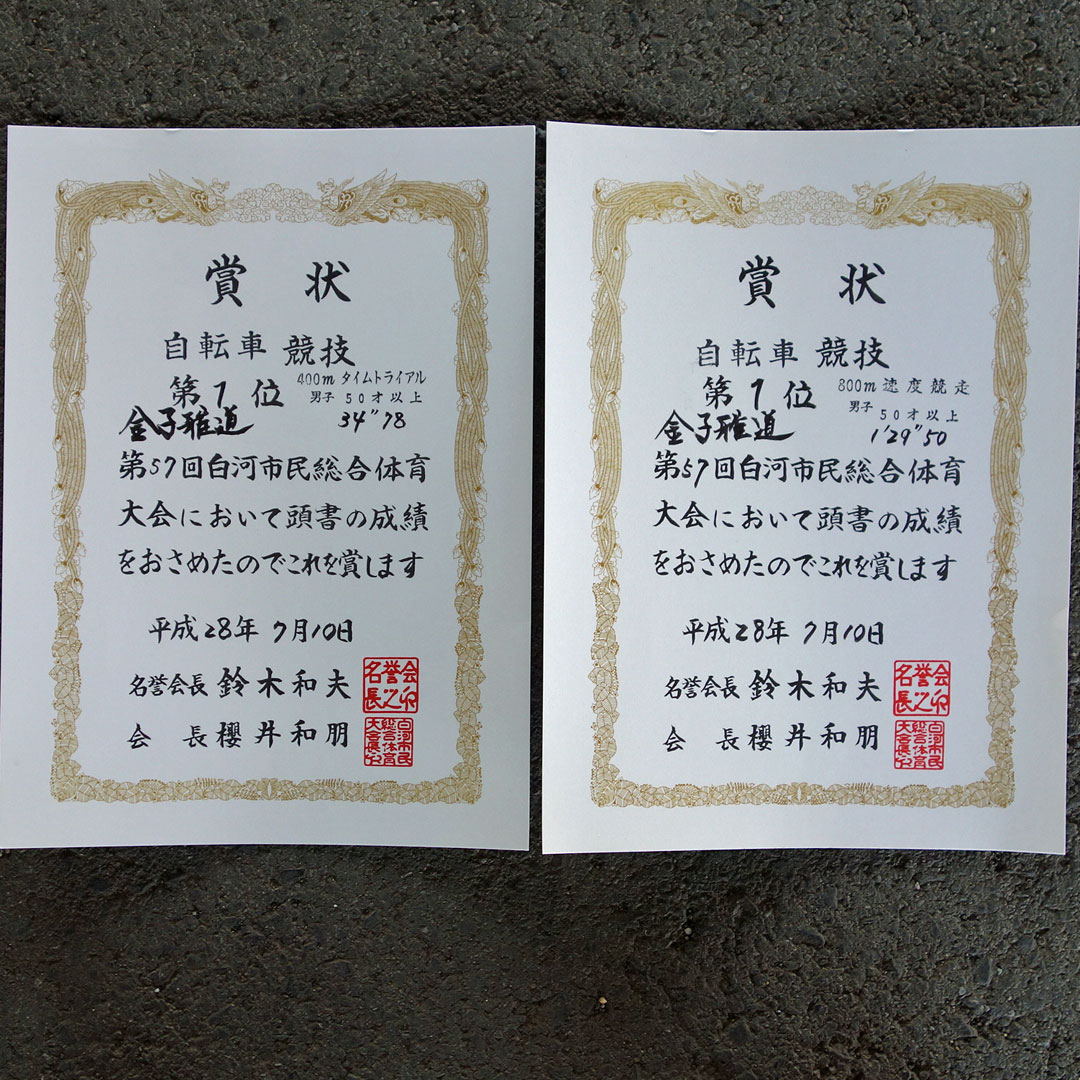 賞 状
自転車 競技
第1位
400m タイムトライアル
男子 50才以上
34"78
金子雅道
第57回白河市民総合体育
大会において頭書の成績
をおさめたのでこれを賞します
平成28年 7月10日
名誉会長 鈴木和夫
名誉会長之印
会 長 櫻井和朋
白河市民総合体育大会長之印
賞 状
自転車 競技
第1位
800m 速度競走
男子 50才以上
1'29"50
金子雅道
第57回白河市民総合体育
大会において頭書の成績
をおさめたのでこれを賞します
平成28年 7月10日
名誉会長 鈴木和夫
名誉会長之印
会 長 櫻井和朋
白河市民総合体育大会長之印